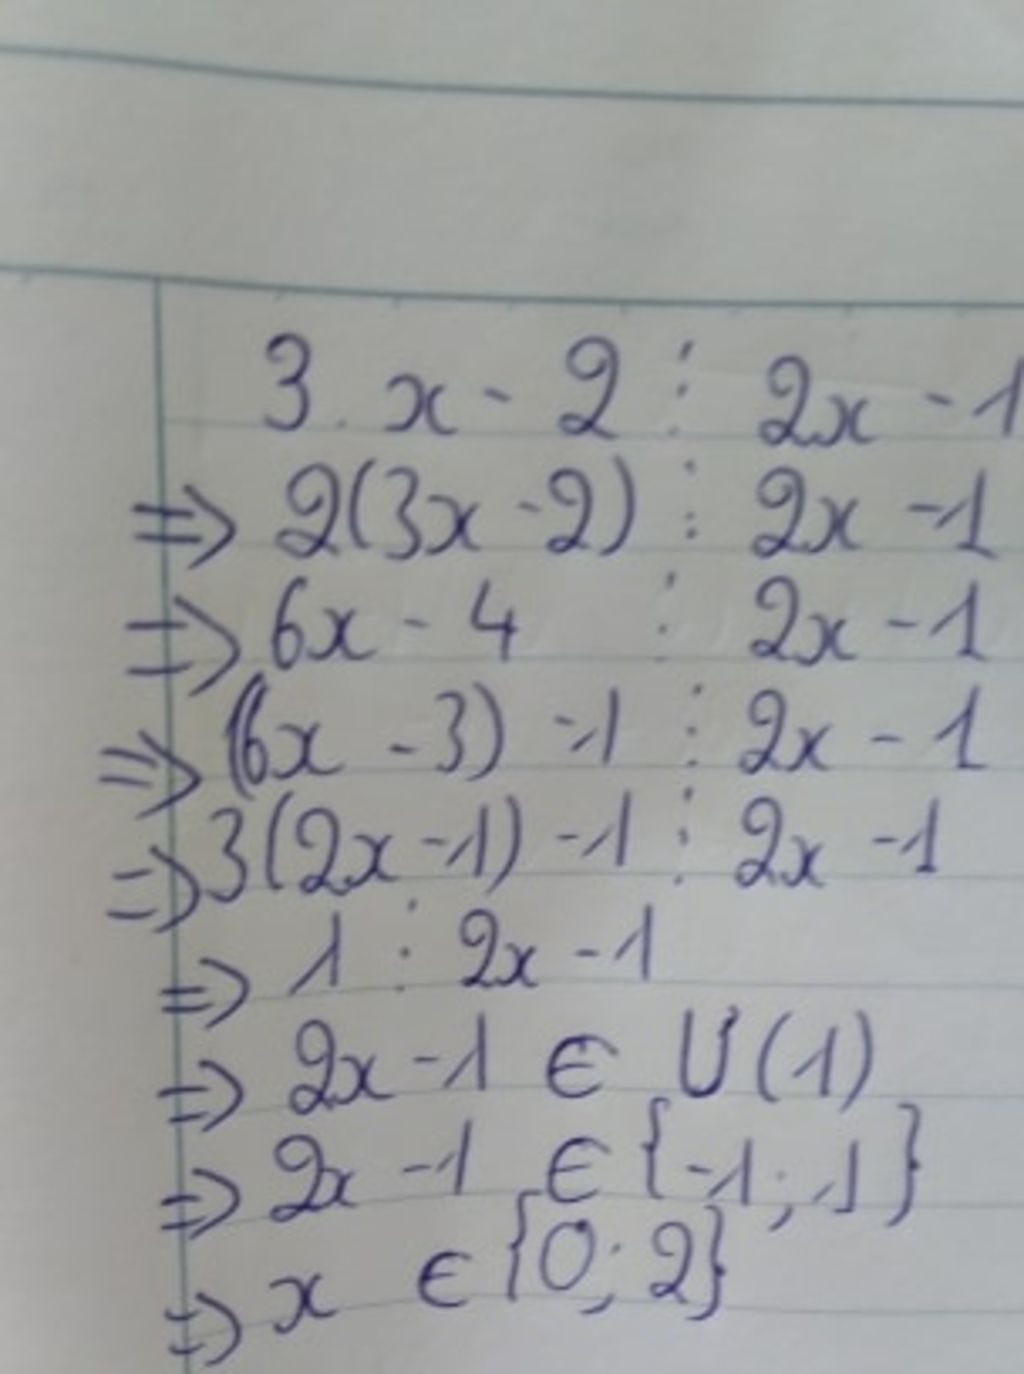 3. x - 2 ⋮ 2x - 1
=> 2(3x - 2) ⋮ 2x - 1
=> 6x - 4 ⋮ 2x - 1
=> (6x - 3) - 1 ⋮ 2x - 1
=> 3(2x - 1) - 1 ⋮ 2x - 1
=> 1 ⋮ 2x - 1
=> 2x - 1 ∈ Ư(1)
=> 2x - 1 ∈ {-1; 1}
=> x ∈ {0; 2}